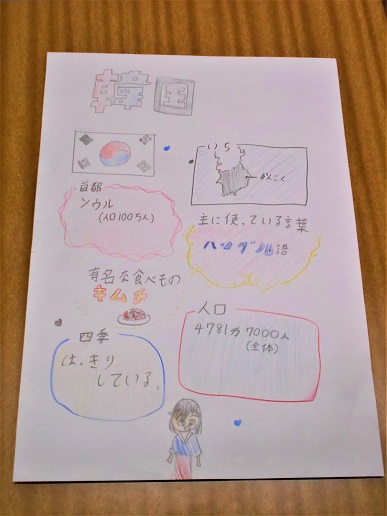 韓国
いち
かんこく
首都
ソウル
(人口100万人)
主に使っている言葉
ハングル語
有名な食べもの
キムチ
人口
4781万7000人
(全体)
四季
はっきり
している。